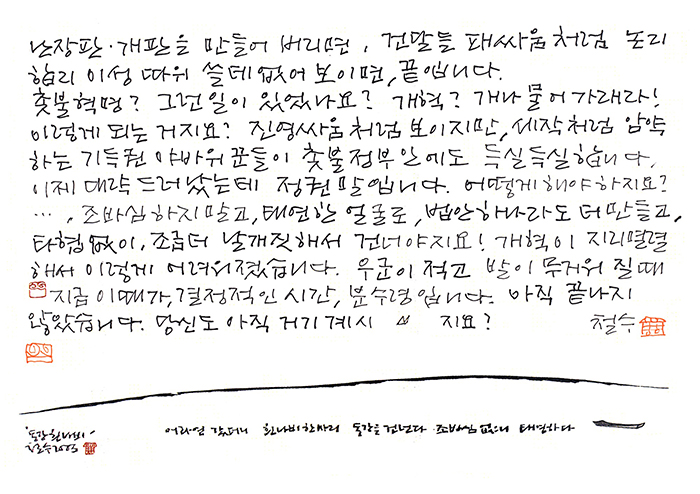 난장판·개판을 만들어 버리면, 건달들 패싸움처럼 논리
합리 이성 따위 쓸데없어 보이면, 끝입니다.
촛불혁명? 그런일이 있었나요? 개혁? 개나 물어가래라!
이렇게 되는 거지요? 진영싸움처럼 보이지만, 세작처럼 암약
하는 기득권 야바위꾼들이 촛불정부안에도 득실득실합니다.
이제 대략 드러났는데 정권말입니다. 어떻게해야하지요?
…, 조바심하지말고, 태연한 얼굴로, 법안하나라도 더 만들고,
타협없이, 조금더 날개짓해서 건너야지요! 개혁이 지리멸렬
해서 이렇게 어려워졌습니다. 우군이 적고 발이 무거워 질때
지금 이때가, 결정적인 시간, 분수령입니다. 아직 끝나지
않았습니다. 당신도 아직 거기계시 지요?
철수
'동강 흰나비'
철수2005
어라연 갔더니 흰나비한마리 동강을 건넌다 조바심 없으니 태연하다